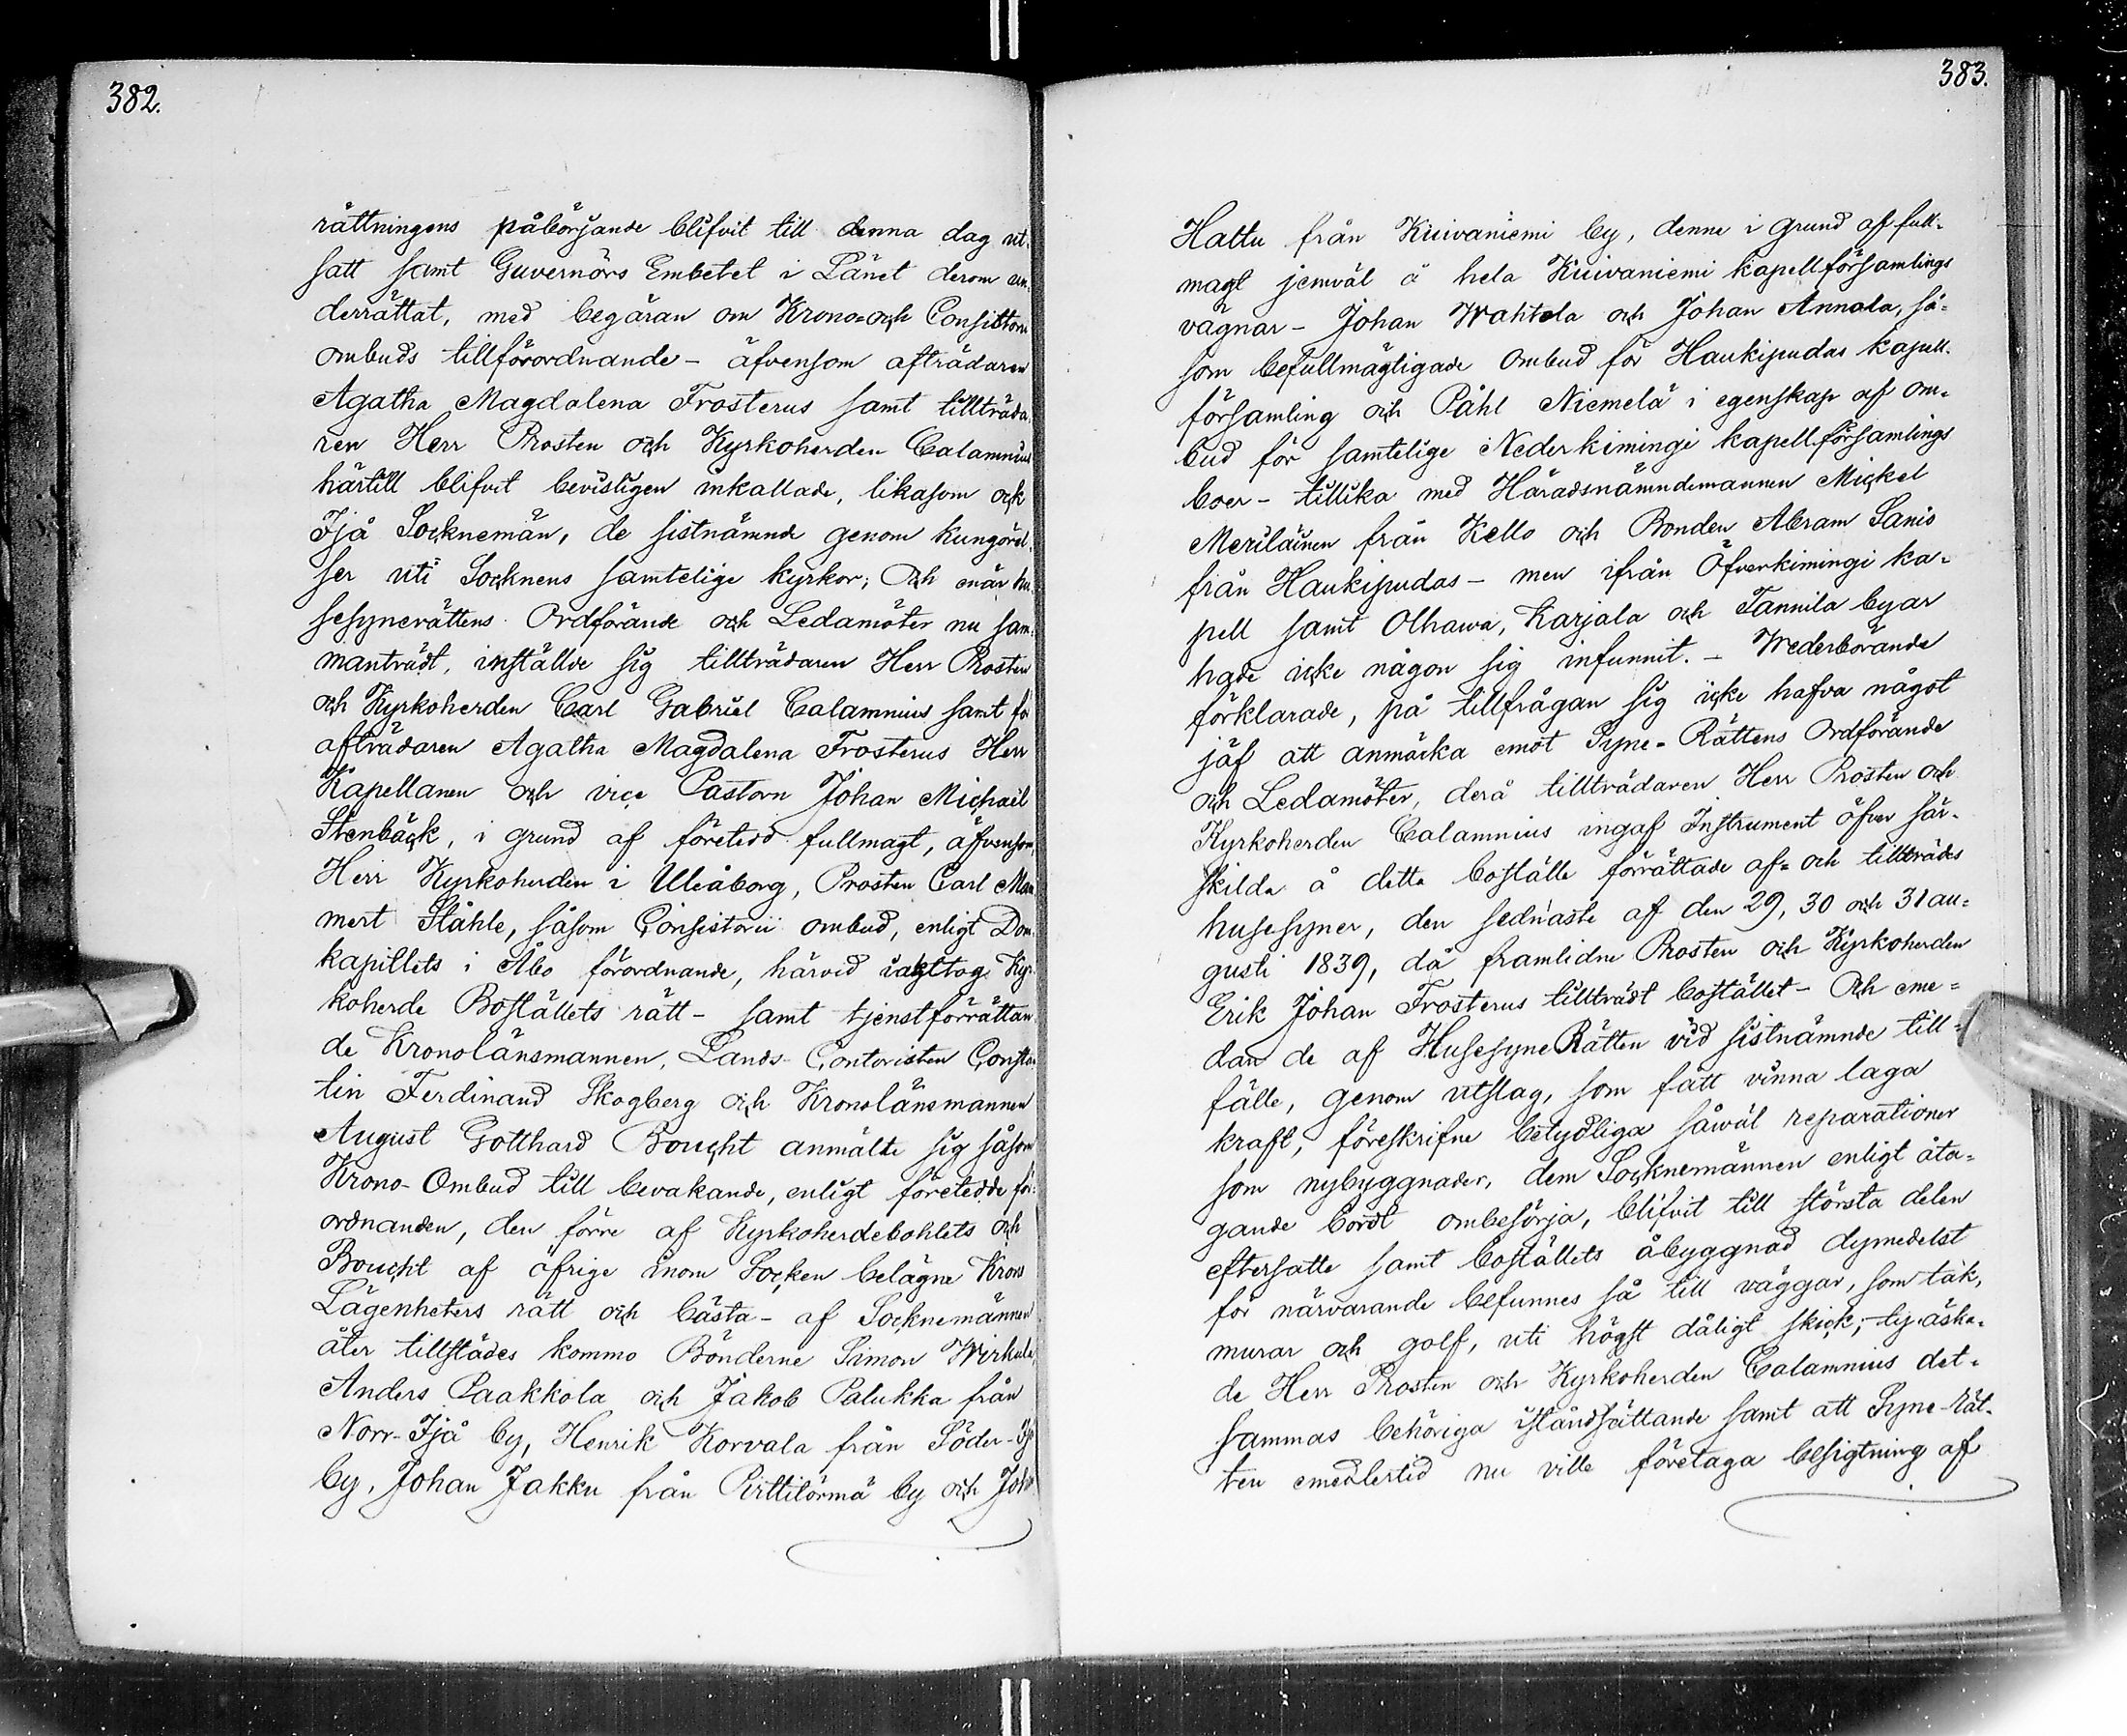 382.
rättningens påbörjande blifvit till denna dag ut-
satt samt Guvernörs Embetet i Länet derom un-
derrättat, med begäran om Krono- och Consistorii
ombuds tillförordnande - äfvensom afträdaren
Agatha Magdalena Frosterus samt tillträda-
ren Herr Prosten och Kyrkoherden Calamnius
härtill blifvit bevisligen inkallade, likasom ock
Ijå Socknemän, de sistnämnde genom kungörel-
ser uti Socknens samtelige kyrkor; Och enär hu-
sesynerättens Ordförande och Ledamöter nu sam-
manträdt, inställde sig tillträdaren Herr Prosten
och Kyrkoherden Carl Gabriel Calamnius samt för
afträdaren Agatha Magdalena Frosterus Herr
Kapellanen och vice Pastorn Johan Michael
Stenbäck, i grund af företedd fullmagt, äfvensom
Herr Kyrkoherden i Uleåborg, Prosten Carl Mam-
mert Ståhle, såsom Consistorii ombud, enligt Dom-
kapitlets i Åbo förordnande, härvid iakttog Kyr-
koherde Boställets rätt - samt tjenstförrättan-
de Kronolänsmannen, Lands-Contoristen Constan-
tin Ferdinand Skogberg och Kronolänsmannen
August Gotthard Boucht anmälte sig såsom
Krono-Ombud till bevakande, enligt företedde för-
ordnanden, den förre af Kyrkoherdebohlets och
Boucht af öfrige inom Socken belägne Krono
Lägenheters rätt och bästa - af Socknemännen
åter tillstädes kommo Bönderne Simon Wirkula,
Anders Paakkola och Jakob Palukka från
Norr-Ijå by, Henrik Korvala från Söder-Ijå
by, Johan Jakku från Pirttitörmä by och Johan
383.
Hattu från Kuivaniemi by, denne i grund af full-
magt jemväl å hela Kuivaniemi kapellförsamlings
vägnar - Johan Wahtola och Johan Annala, så-
som befullmägtigade Ombud för Haukipudas kapell-
församling och Påhl Niemelä i egenskap af om-
bud för samtelige Nederkimingi kapellförsamlings
boer - tillika med Häradsnämndemannen Mickel
Meriläinen från Kello och Bonden Abram Sanis
från Haukipudas - men ifrån Öfverkimingi ka-
pell samt Olhawa, Karjala och Tannila byar
hade icke någon sig infunnit. - Wederbörande
förklarade, på tillfrågan sig icke hafva något
jäf att anmärka emot Syne-Rättens Ordförande
och Ledamöter, derå tillträdaren Herr Prosten och
Kyrkoherden Calamnius ingaf Instrument öfver sär-
skilda å detta boställe förrättade af- och tillträdes
husesyner, den sednaste af den 29, 30 och 31 au-
gusti 1839, då framlidne Prosten och Kyrkoherden
Erik Johan Frosterus tillträdt bostället - Och eme-
dan de af HusesyneRätten vid sistnämnde till-
fälle, genom utslag, som fått vinna laga
kraft, föreskrifne betydliga såwäl reparationer
som nybyggnader, dem Socknemännen enligt åta-
gande bordt ombesörja, blifvit till största delen
eftersatte samt boställets åbyggnad dymedelst
för närvarande befunnes så till väggar, som tak,
murar och golf, uti högst dåligt skick; ty äska-
de Herr Prosten och Kyrkoherden Calamnius det-
sammas behöriga iståndsättande samt att Syne-rät-
ten emedlertid nu ville företaga besigtning af